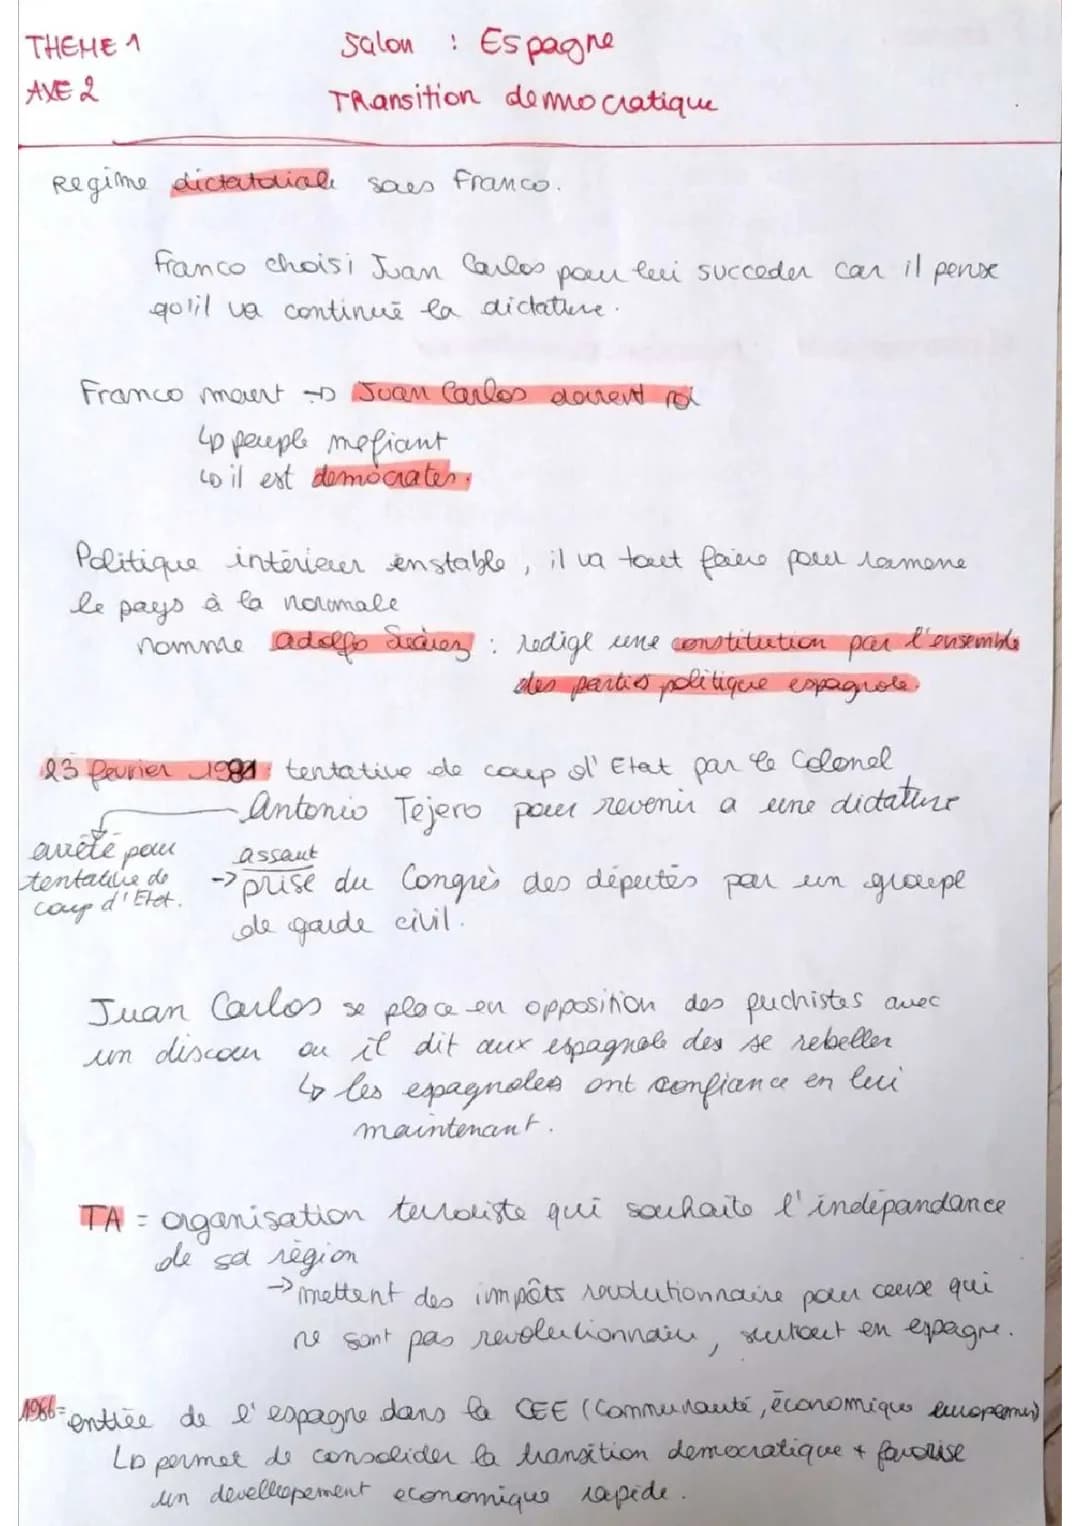 THEME 1
Salon : Espagne
AXE 2
TRansition democratique
Regime dictatoriale sous Franco.
Franco choisi Juan Carlos pour lui succeder car il pense
qu'il va continué la dictature.
Franco meurt → Juan Carlos devient roi
↳ peuple mefiant
↳ il est democrates.
Politique intérieur instable, il va tout faire pour ramene
le pays à la normale
nomme adolfo Suárez : redige une constitution par l'ensemble
des partis politique espagnole.
23 fevrier 1981 : tentative de coup d'Etat par le Colonel
Antonio Tejero pour revenir a une dictature
arrêté pour
tentative de
coup d'Etat.
assaut
→ prise du Congrès des députés par un groupe
de garde civil.
Juan Carlos se place en opposition des puchistes avec
un discour ou il dit aux espagnole des se rebeller
↳ les espagnoles ont confiance en lui
maintenant.
TA = organisation terroriste qui souhaite l'indépandance
de sa région
→ mettent des impôts revolutionnaire pour ceux qui
ne sont pas revolutionnaire, surtout en espagne.
1986 = entrée de l'espagne dans la CEE (Communauté, économique europeenne)
↳ permet de consolider la transition democratique + favorise
un develloppement economique rapide.